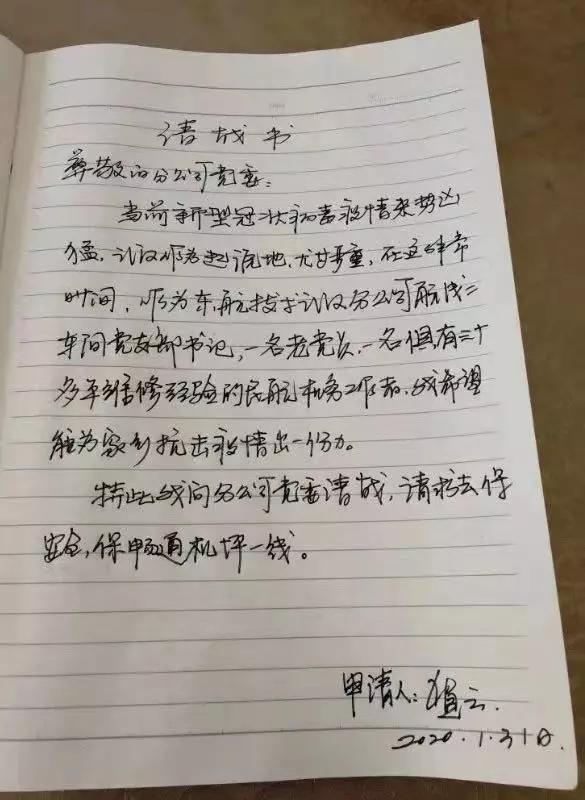 请战书
尊敬的分公司党委:
当前新型冠状病毒疫情来势凶
猛,武汉作为起源地,尤其严重,在这非常
时间,作为东航技术武汉分公司航线二
车间党支部书记,一名老党员,一名俱有三十
多年维修经验的民航机务工作者,我希望
能为家乡抗击疫情出一份力。
特此我向分公司党委请战,请求去保
安全,保畅通机坪一线。
申请人:云
2020.1.31日